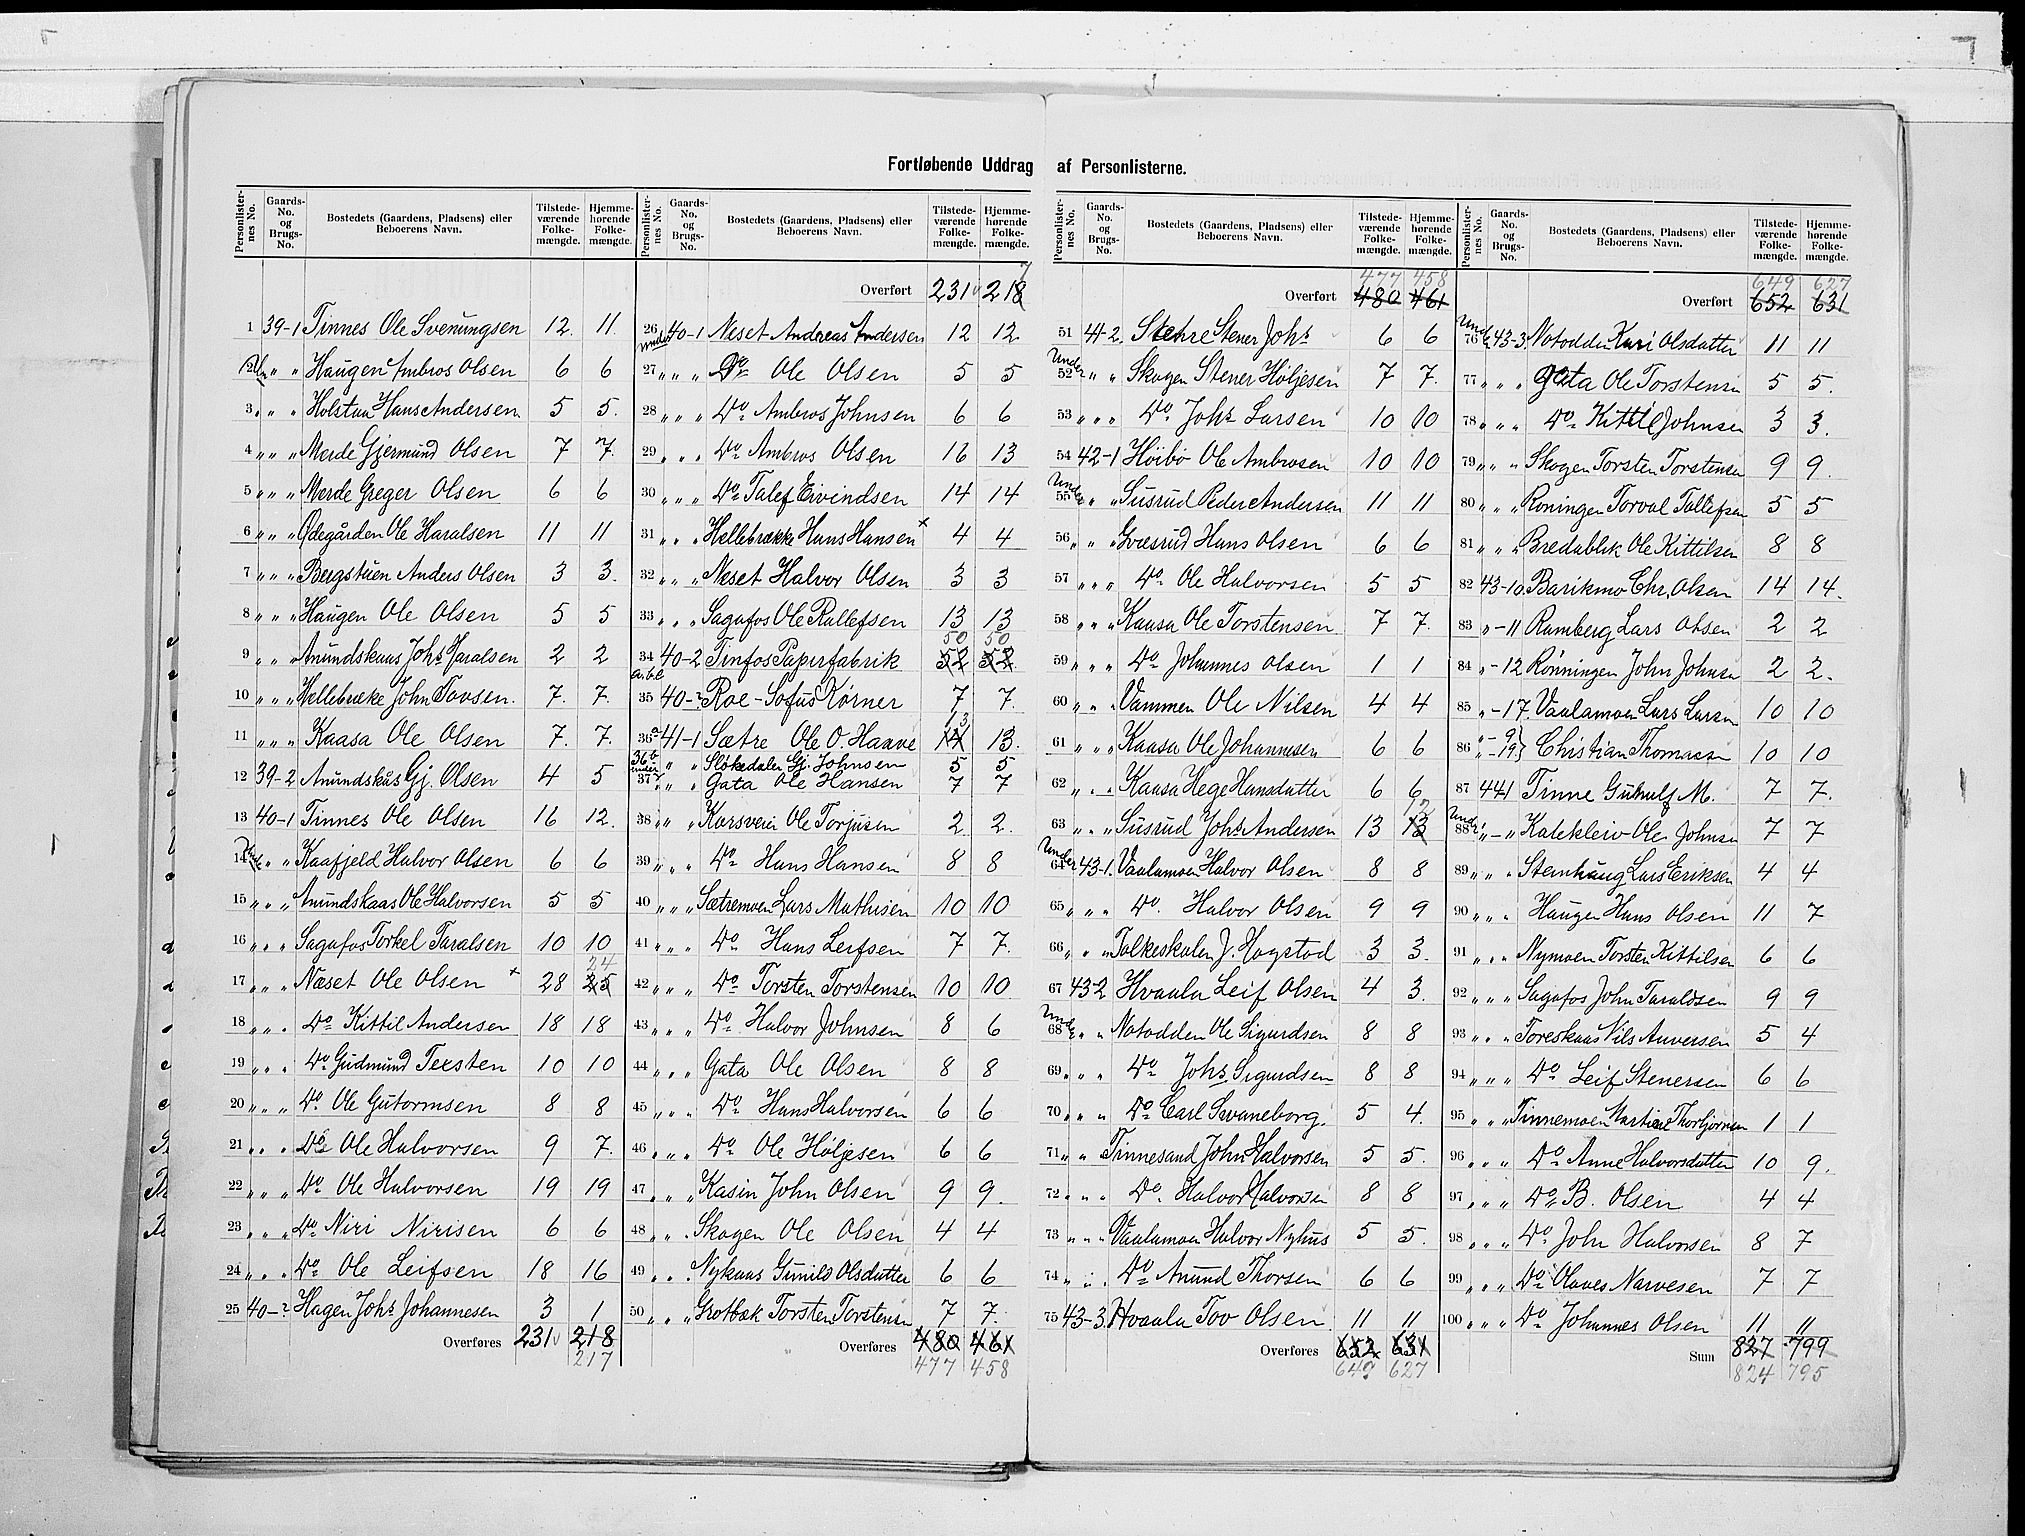 Fortløbende Uddrag af Personlisterne.
Personlister-nes No. Gaards-No. og Brugs-No. Bostedets (Gaardens, Pladsens) eller Beboerens Navn. Tilstede-værende Folke-mængde. Hjemme-hørende Folke-mængde.
1 39-1 Tinnes Ole Svenungsen 12. 11.
2 " " Haugen Ambros Olsen 6 6
3 " " Holstan Hans Andersen 5 5.
4 " " " Merde Gjermund Olsen 7 7.
5 " " " Merde Greger Olsen 6 6
6 " " " Ødegården Ole Haralsen 11 11
7 " " " Bergstuen Anders Olsen 3 3.
8 " " " Haugen Ole Olsen 5 5
9 " " " Anundskaas Johs Haralsen 2 2
10 " " " Hellebræke John Tovsen. 7. 7.
11 " " " Kaasa Ole Olsen 7. 7.
12 39-2 Anundskås Gj. Olsen 4 5
13 40-1 Tinnes Ole Olsen 16 12.
14 " " Kaafjeld Halvor Olsen 6 6
15 " " " Anundskaas Ole Halvorsen 5 5
16 " " " Sagafos Torkel Taralsen 10 10
17 " " " Næset Ole Olsen + 28 25 24
18 " " " Do Kittil Andersen 18 18
19 " " " Do Gudmund Teesten 10 10
20 " " " Do Ole Gutormsen 8 8
21 " " " Do Ole Halvorsen 9 7.
22 " " " Do Ole Halvorsen 19 19
23 " " " Do Niri Nirisen 6 6
24 " " " Do Ole Leifsen 18 16
25 40-2 Hagen Johs Johannesen 3 1
Overføres 231 218
217
Personlister-nes No. Gaards-No. og Brugs-No. Bostedets (Gaardens, Pladsens) eller Beboerens Navn. Tilstede-værende Folke-mængde. Hjemme-hørende Folke-mængde.
Overført 231 218 7
26 under 40-1 Næset Andreas Andersen 12 12.
27 " " " Do Ole Olsen 5 5
28 " " " Do Ambros Johnsen 6 6
29 " " " Do Ambros Olsen 16 13
30 " " " Do Talef Eivindsen 14 14
31 " " " Hellebrække Hans Hansen + 4 4
32 " " " Næset Halvor Olsen 3 3
33 " " " Sagafos Ole Rollefsen 13 13
34 a.b.c 40-2 Tinfos Papirfabrik 52 52 50 50
35 40-2 Roe - Sofus Kørner 7 7.
36a 41-1 Sætre Ole O. Haave 14 13 13.
36b under " " Sløkedalen Gj. Johnsen 5 5
37 " " Gata Ole Hansen 7 7
38 " " " Korsveien Ole Torjusen 2. 2.
39 " " " Do Hans Hansen 8 8
40 " " " Sætremoen Lars Mathisen 10 10
41 " " " Do Hans Leifsen 7 7.
42 " " " Do Torsten Torstensen 10 10.
43 " " " Do Halvor Johnsen 8 6
44 " " " Gata Ole Olsen 8 8
45 " " " Do Hans Halvorsen 6 6
46 " " " Do Ole Höljesen 6 6
47 " " " Kasin John Olsen 9 9.
48 " " " Skogen Ole Olsen 4 4
49 " " " Nykaas Gunild Olsdatter 6 6
50 " " " Grotbæk Torsten Torstensen 7 7.
Overføres 480 461
477 458
Personlister-nes No. Gaards-No. og Brugs-No. Bostedets (Gaardens, Pladsens) eller Beboerens Navn. Tilstede-værende Folke-mængde. Hjemme-hørende Folke-mængde.
477 458
Overført 480 461
51 41-2. Stehre Stener Johs 6 6
52 Under " " Skogen Stener Höljesen 7 7.
53 " " " Do Johs Larsen 10 10
54 42-1 Höibö Ole Ambrosen 10 10
55 Under " " Susrud Peder Andersen 11 11
56 " " Gvæsrud Hans Olsen 6 6
57 " " " Do Ole Halvorsen 5 5
58 " " " Kaasa Ole Torstensen 7 7.
59 " " " Do Johannes Olsen 1 1
60 " " " Vammen Ole Nilsen 4 4
61 " " " Kaasa Ole Johannesen 6 6
62 " " " Kaasa Hege Hansdatter 6 6
63 " " " Susrud Johs Andersen 13 13 12
64 Under 43-1. Vaalamoen Halvor Olsen 8 8
65 " " " Do. Halvor Olsen 9 9
66 " " " Folkeskolen J. Hogstad 3 3.
67 43-2 Hvaala Leif Olsen 4 3.
68 Under " " Notodden Ole Sigurdsen 8 8
69 " " " Do Johs Sigurdsen 8 8
70 " " " Do Carl Svaneborg. 5 4.
71 " " Tinnesand John Halvorsen 5 5.
72 " " " Do. Halvor Halvorsen 8 8
73 " " " Vaalamoen Halvor Nyhus 5 5.
74 " " " Do Anund Thorsen 6 6
75 43-3. Hvaala Tov Olsen 11 11
Overføres 652 631
649 627
Personlister-nes No. Gaards-No. og Brugs-No. Bostedets (Gaardens, Pladsens) eller Beboerens Navn. Tilstede-værende Folke-mængde. Hjemme-hørende Folke-mængde.
649 627
Overført 652 631
76 Under 43-3. Notodden Kari Olsdatter 11 11
77 " " " Gata Ole Torstensen 5 5.
78 " " " Do Kittil Johnsen 3 3.
79 " " " Skogen Torsten Torstensen 9 9.
80 " " " Roningen Torval Tollefsen 5 5
81 " " " Bredablik Ole Kittilsen 8 8
82 43-10. Barikmo Chr. Olsen 14 14.
83 " -11 Ramberg Lars Olsen 2 2
84 " -12 Rönningen John Johnsen 2 2.
85 " -17. Vaalamoen Lars Larsen 10 10
86 " -9 " -19 } Christian Thomassen 10 10
87 44-1 Tinne Guthulf M. 7 7.
88 Under " - " Kalekleiv Ole Johnsen 7 7
89 " " " Stenhaug Lars Eriksen 4 4
90 " " " Haugen Hans Olsen 11 7
91 " " " Nymoen Torsten Kittilsen 6 6
92 " " " Sagafos John Taraldsen 9 9
93 " " " Toreskaas Nils Anversen 5 4
94 " " " Do Leif Stenersen 6 6
95 " " " Tinnemoen Martin Thorbjörnsen 1 1
96 " " " Do Anne Halvorsdatter 10 9.
97 " " " Do B. Olsen 4 4
98 " " " Do John Halvorsen 8 7
99 " " " Do Olaves Narvesen 7 7
100 " " " Do Johannes Olsen 11 11
Sum 827 799
824 795